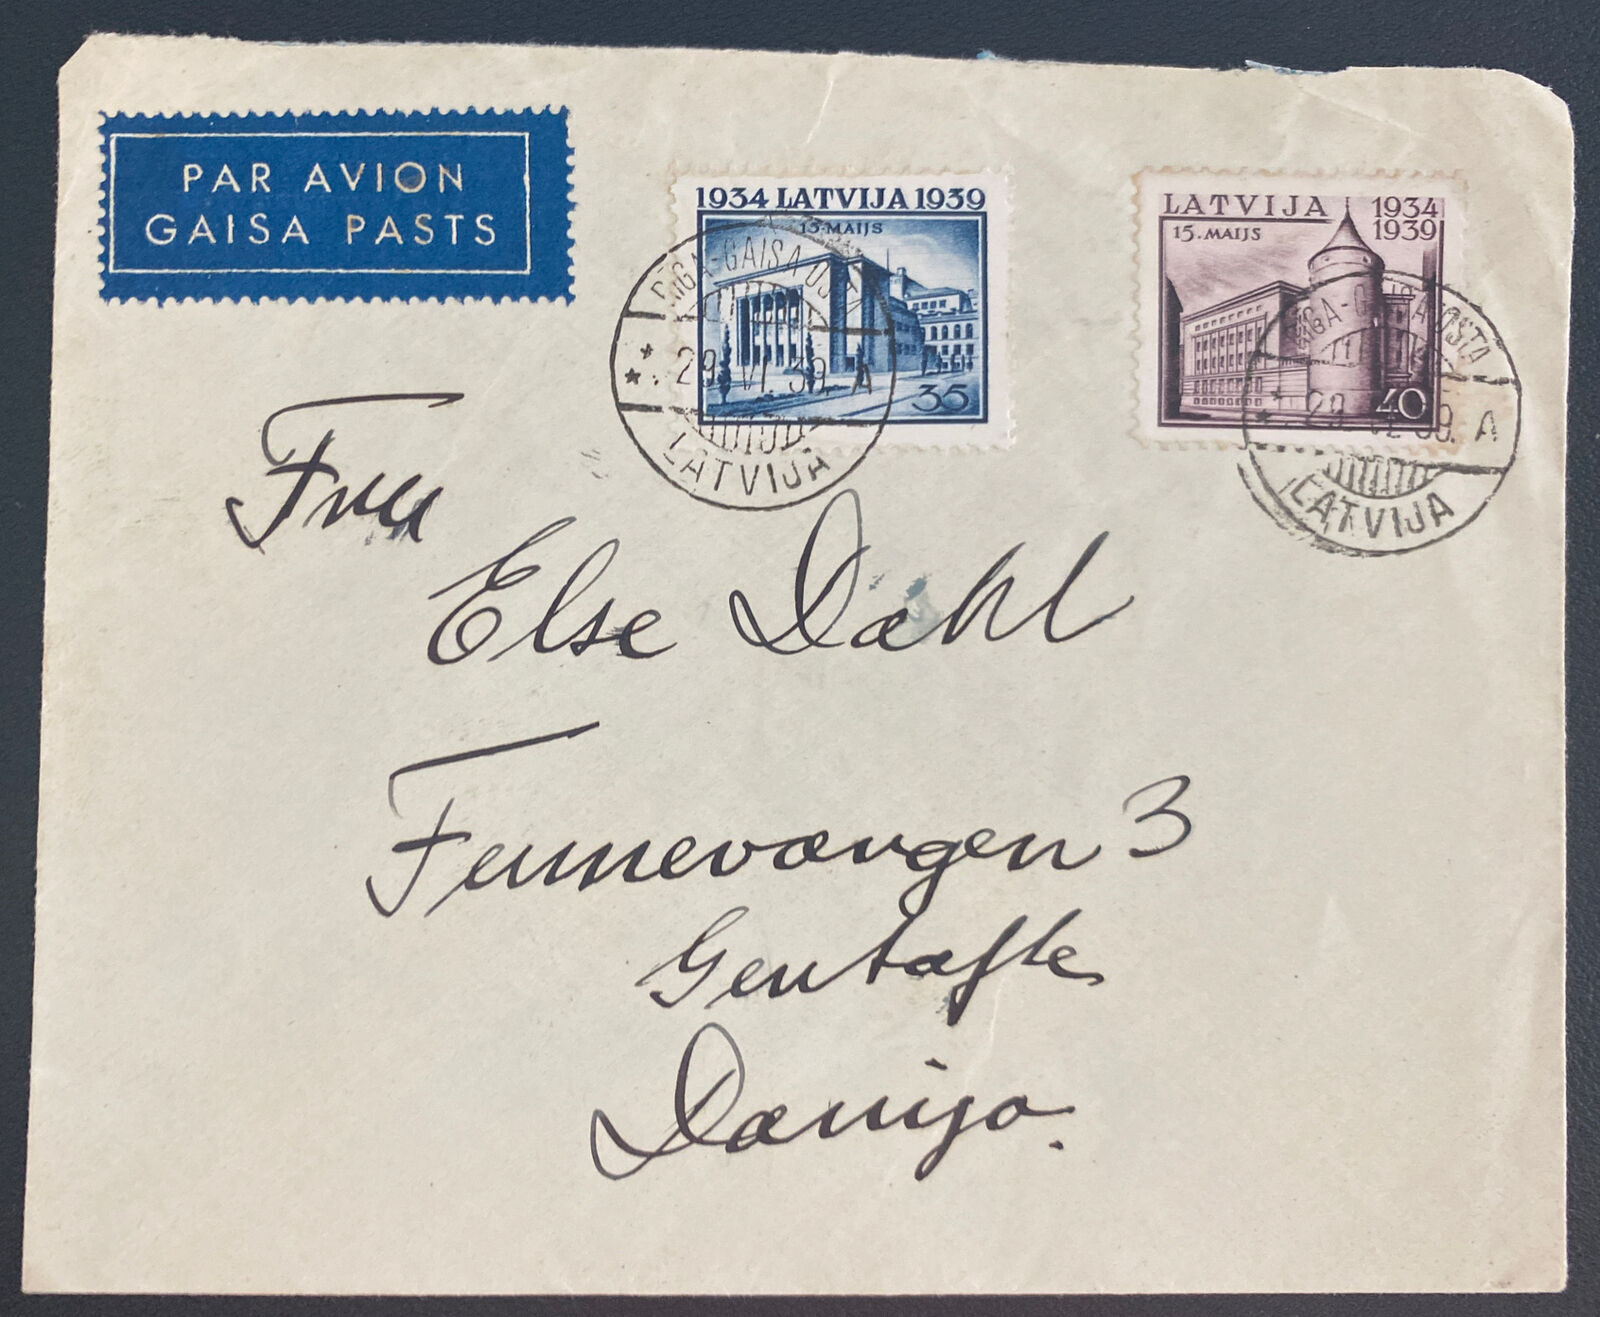 PAR AVION
GAISA PASTS
1934 LATVIJA 1939
15. MAIJS
35
LATVIJA 1934
15. MAIJS 1939
40
RIGA-GAISA OSTA
29. VI. 39. A
LATVIJA
RIGA-GAISA OSTA
29. VI. 39. A
LATVIJA
Fru
Else Dahl
Fennevangen 3
Gentofte
Danija.